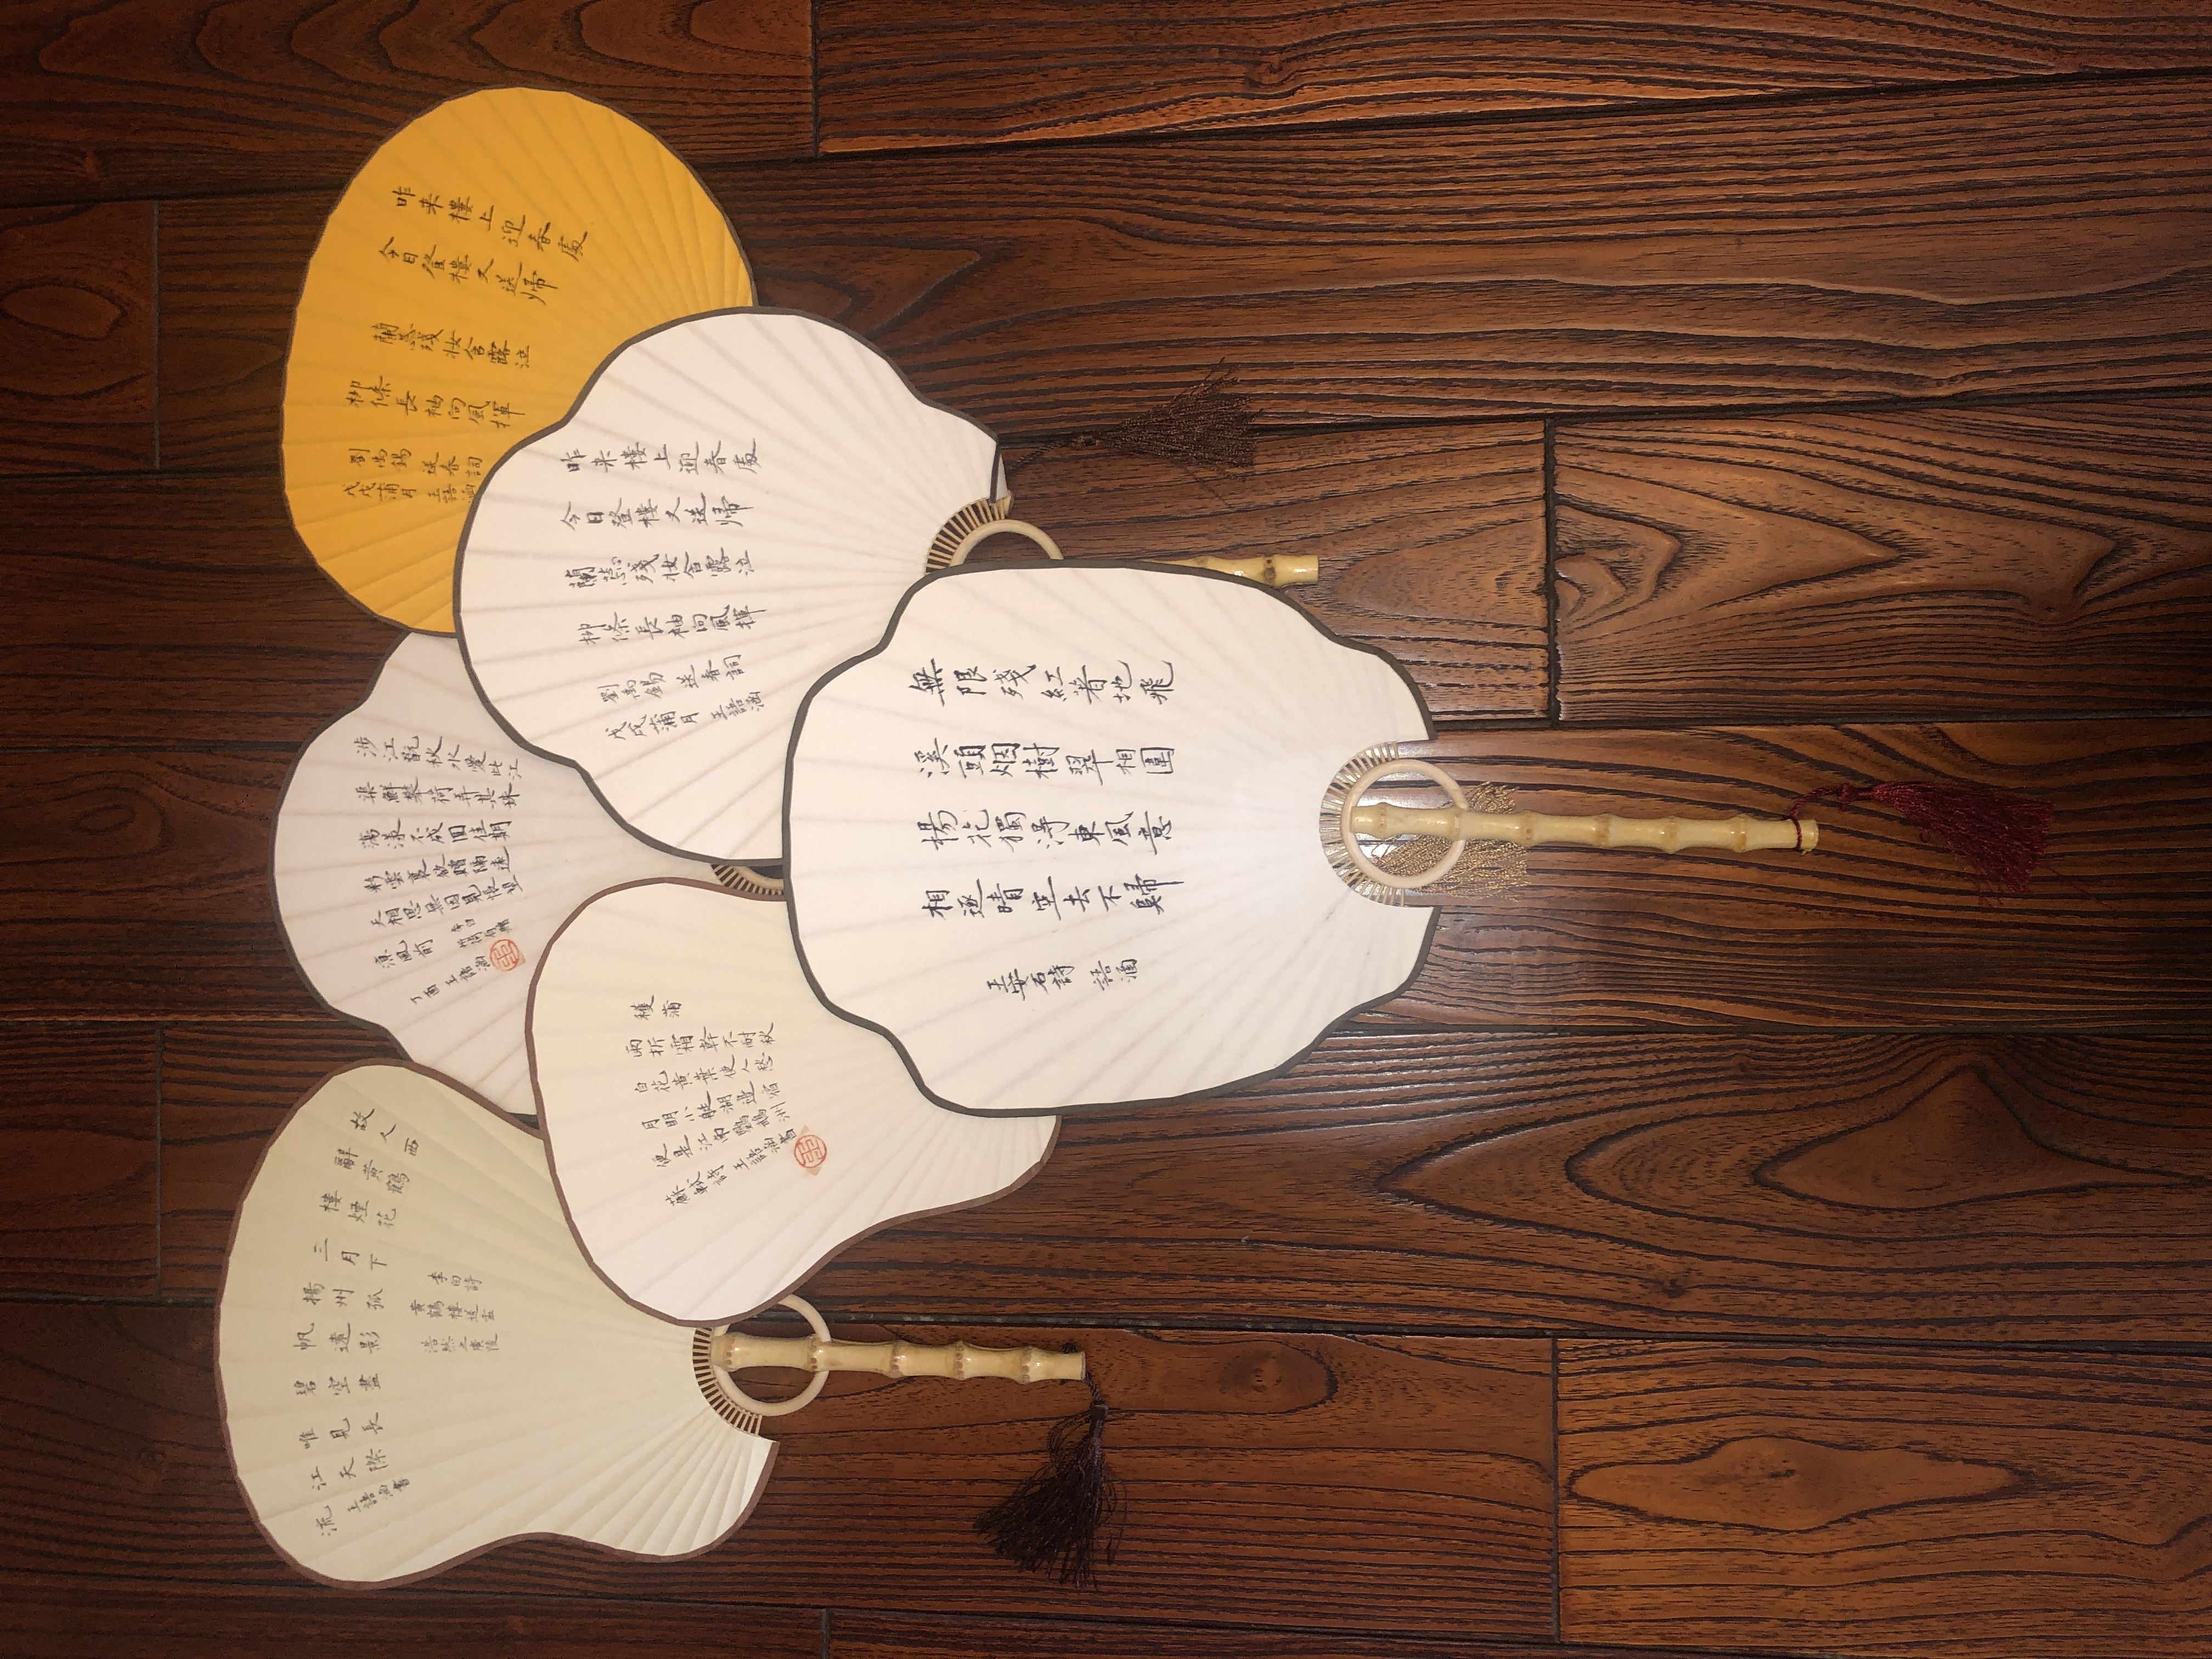 故人西
辭黃鶴
樓煙花
三月下
揚州孤
帆遠影
碧空盡
唯見長
江天際
流
李白詩
黃鶴樓送孟
浩然之廣陵
王語涵書
涉江翫秋水愛此江
渠鮮攀荷弄其珠
蕩漾不成圓佳期
彩雲裏欲贈隔遠
天相思無因見悵望
涼風前
李白
折荷有贈
丁酉 王語涵
昨来樓上迎春處
今日登樓又送歸
蘭蕊殘妝含露泣
柳條長袖向風揮
劉禹錫 送春詞
戊戌蒲月 王語涵
穫蒲
雨折霜幹不耐秋
白花黃葉使人愁
月明小艇湖邊宿
便是江南鸚鵡洲
蘇軾詩 王語涵書
昨来樓上迎春處
今日登樓又送歸
蘭蕊殘妝含露泣
柳條長袖向風揮
劉禹錫 送春詞
戊戌蒲月 王語涵
無限殘紅著地飛
溪頭烟樹翠相圍
楊花獨得東風意
相逐晴空去不歸
王安石詩 語涵